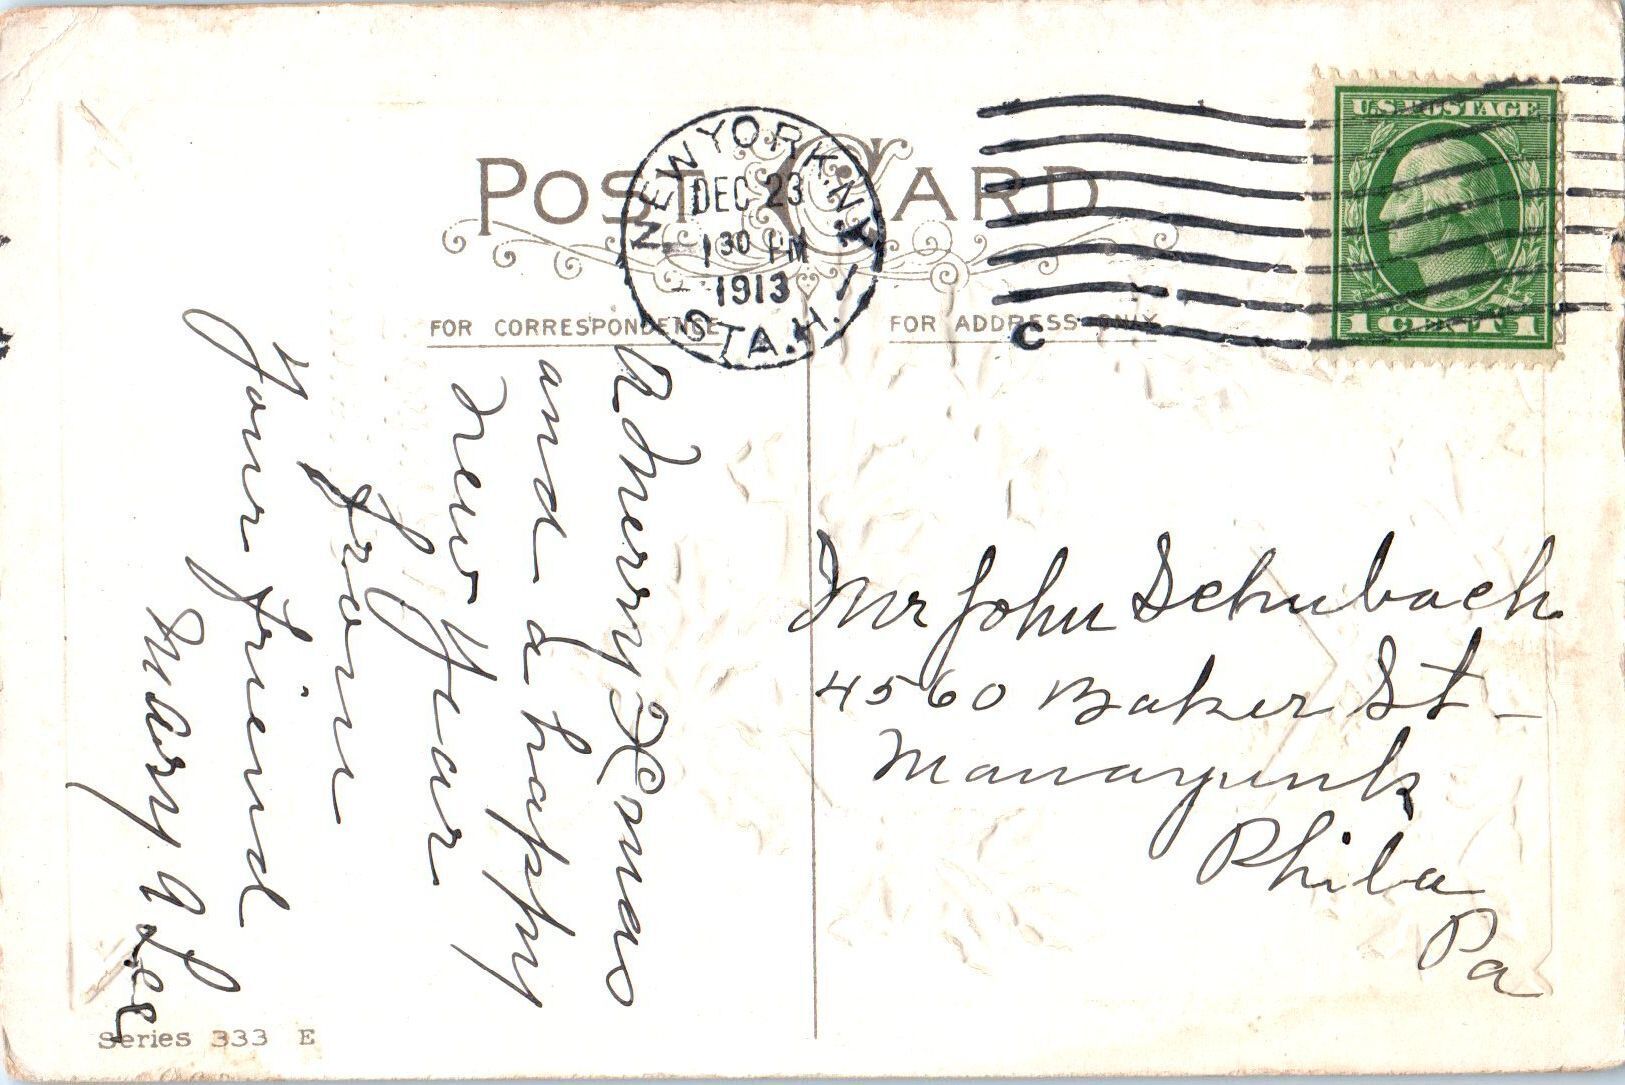 POST CARD
NEW YORK, N.Y.
DEC 23
1 30 PM
1913
STA. H.
C
U.S. POSTAGE
1 CENT 1
FOR CORRESPONDENCE
FOR ADDRESS ONLY
A Merry Xmas
and a happy
new Year
from
Your friend
Mary A Lee
Mr John Schubach
4560 Baker St -
Manayunk
Phila
Pa
Series 333 E